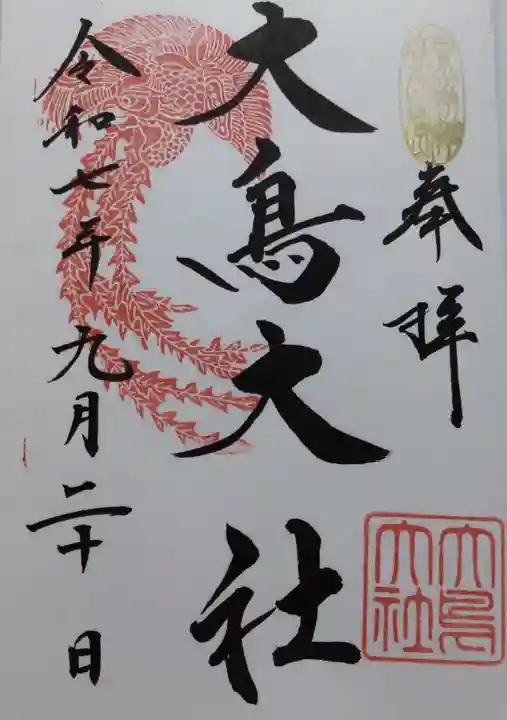 奉拝
大鳥大社
大鳥大社
令和七年九月二十日